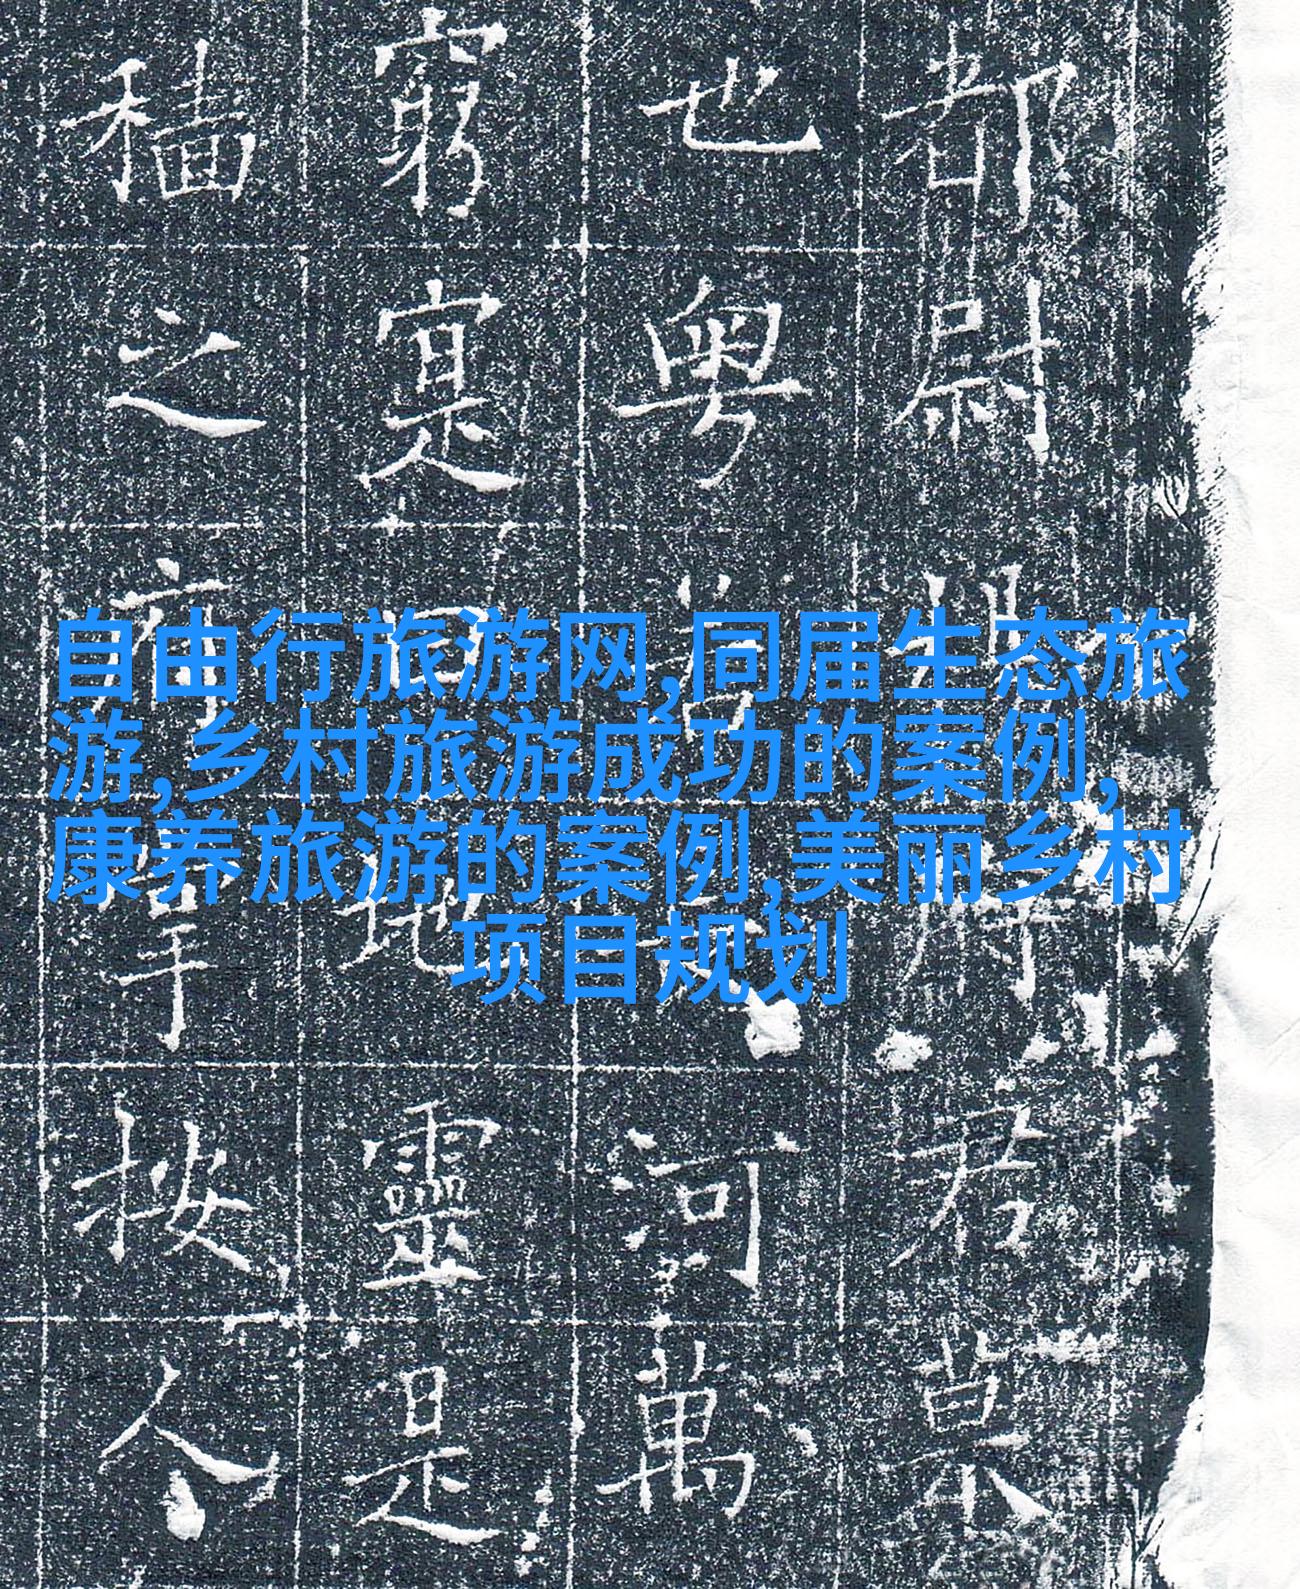 自由行旅游网,同届生态旅
游,乡村旅游成功的案例,
康养旅游的案例,美丽乡村
项目规划
都尉府君
也粵若河萬
窮寔曰地靈是
穡之按人